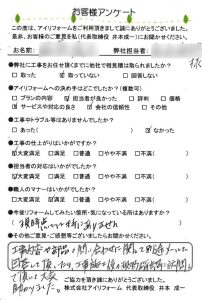 お客様アンケート
この度は、アイリフォームをご利用頂きまして誠にありがとうございました。
是非、お客様のご意見を私(代表取締役 井本成一)にお聞かせください。
お名前: 弊社担当者:
様
●弊社に工事をお任せ頂くまでに他社で相見積は取られましたか?
取った 取っていない 回答しない
●アイリフォームへの決め手はどこでしたか?(複数可能)
プランの内容 担当者が良かった 評判 価格
サービスや対応の良さ 会社の信頼性 その他
●工事中トラブル等はありませんでしたか?
あった( ) なかった
●工事の仕上がりはいかがですか?
大変満足 満足 普通 やや不満 不満( )
●担当者の対応はいかがでしたか?
大変満足 満足 普通 やや不満 不満( )
●職人のマナーはいかがでしたか?
大変満足 満足 普通 やや不満 不満( )
●今後リフォームしてみたい箇所・気になっている所はありますか?
( 現時点では特にありません )
●その他ご意見・ご感想等ございましたらお書きください。
頂いて大変
助かりました。
ご協力を誠にありがとうございました。
株式会社アイリフォーム 代表取締役 井本 成一